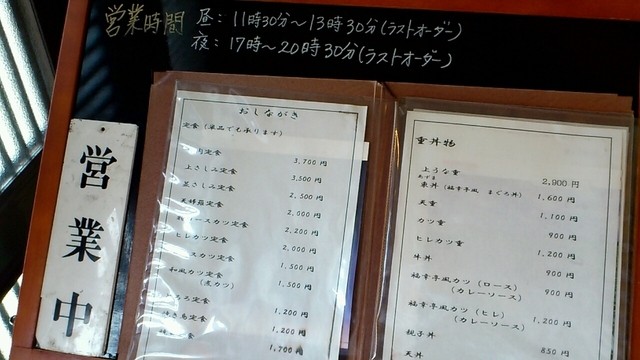 営業時間 昼：11時30分〜13時30分(ラストオーダー)
夜：17時〜20時30分(ラストオーダー)
営業中
おしながき
定食(単品でも承ります)
定食 3,700円
上さしみ定食 3,500円
さしみ定食 2,500円
天婦羅定食 2,000円
ースカツ定食 2,200円
ヒレカツ定食 2,000円
スカツ定食 1,500円
和風カツ定食 1,500円
ろ定食 1,200円
き鳥定食 1,200円
1,700円
重丼物
上うな重 2,900円
東丼(福幸亭風 まぐろ丼) 1,600円
天重 1,100円
カツ重 900円
ヒレカツ重 1,200円
牛丼 900円
福幸亭風カツ(ロース) 900円
(カレーソース)
福幸亭風カツ(ヒレ) 1,200円
(カレーソース)
親子丼 850円
天丼